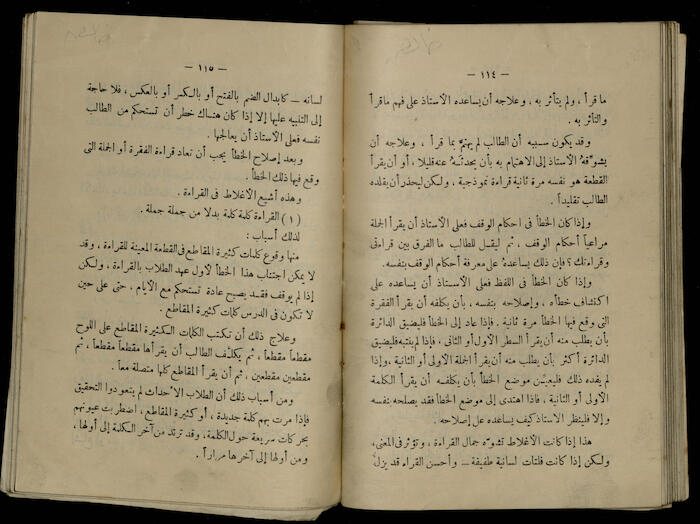 — ١١٤ —
ما قرأ ، ولم يتأثر به ، وعلاجه أن يساعده الأستاذ على فهم ما قرأ
والتأثر به .
وقد يكون سببه أن الطالب لم يهتم بما قرأ ، وعلاجه أن
يشوقه الأستاذ إلى الاهتمام به بأن يحدثه عنه قليلا ، أو أن يقرأ
القطعة هو نفسه مرة ثانية قراءة نموذجية ، ولكن ليحذر أن يقلده
الطالب تقليداً .
وإذا كان الخطأ فى احكام الوقف فعلى الأستاذ أن يقرأ الجملة
مراعياً أحكام الوقف ، ثم ليقل للطالب ما الفرق بين قراءتى
وقراءتك ؟ فإن ذلك يساعده على معرفة أحكام الوقف بنفسه .
وإذا كان الخطأ فى اللفظ فعلى الأستاذ أن يساعده على
اكتشاف خطأه ، وإصلاحه بنفسه ، بأن يكلفه أن يقرأ الفقرة
التى وقع فيها الخطأ مرة ثانية . فإذا عاد إلى الخطأ فليضيق الدائرة
بأن يطلب منه أن يقرأ السطر الأول أو الثانى ، فإذا لم ينتبه فليضيق
الدائرة أكثر بأن يطلب منه أن يقرأ الجملة الاولى أو الثانية ، وإذا
لم يفده ذلك فليعين موضع الخطأ بأن يكلفه أن يقرأ الكلمة
الاولى أو الثانية ، فاذا اهتدى إلى موضع الخطأ فقد يصلحه بنفسه
وإلا فلينظر الأستاذ كيف يساعده على إصلاحه .
هذا إذا كانت الأغلاط تشوه جمال القراءة ، وتؤثر فى المعنى،
ولكن إذا كانت فلتات لسانية طفيفة — وأحسن القراء قد يزل
— ١١٥ —
لسانه — كابدال الضم بالفتح أو بالكسر أو بالعكس ، فلا حاجة
إلى التنبيه عليها إلا إذا كان هناك خطر أن تستحكم من الطالب
نفسه فعلى الأستاذ أن يعالجها .
وبعد إصلاح الخطأ يجب أن تعاد قراءة الفقرة أو الجملة التى
وقع فيها ذلك الخطأ .
وهذه أشيع الأغلاط فى القراءة .
(١) القراءة كلمة كلمة بدلا من جملة جملة .
لذلك أسباب :
منها وقوع كلمات كثيرة المقاطع فى القطعة المعينة للقراءة ، وقد
لا يمكن اجتناب هذا الخطأ لأول عهد الطلاب بالقراءة ، ولكن
إذا لم يوقف فقد يصبح عادة تستحكم مع الأيام ، حتى على حين
لا تكون فى الدرس كلمات كثيرة المقاطع .
وعلاج ذلك أن تكتب الكلمات الكثيرة المقاطع على اللوح
مقطعاً مقطعاً ، ثم يكلف الطالب أن يقرأها مقطعاً مقطعاً ، ثم
مقطعين مقطعين ، ثم أن يقرأ المقاطع كلها متصلة معاً .
ومن أسباب ذلك أن الطلاب الأحداث لم يتعودوا التحقيق
فإذا مرت بهم كلمة جديدة ، أو كثيرة المقاطع ، اضطربت عيونهم
بحركات سريعة حول الكلمة ، وقد ترتد من آخر الكلمة إلى أولها ،
ومن أولها إلى آخرها مراراً .